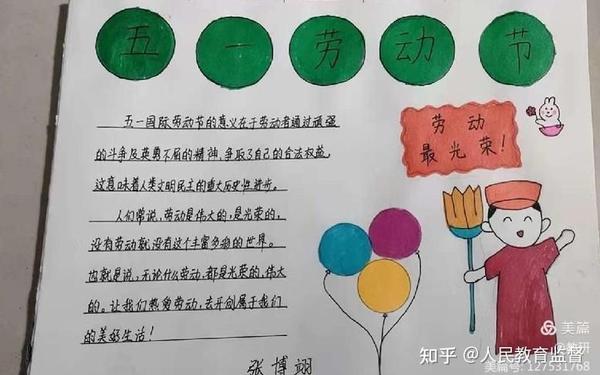 五一劳动节
五一国际劳动节的意义在于劳动者通过顽强
的斗争及英勇不屈的精神,争取了自己的合法权益。
这意味着人类文明民主的重大历史性进步。
人们常说,劳动是伟大的,是光荣的,
没有劳动就没有这个丰富多彩的世界。
也就是说,无论什么劳动,都是光荣的、伟大
的。让我们热爱劳动,去开创属于我们
的美好生活!
张博翊
劳动
最光荣!
美篇
知乎 @人民教育监督
美篇号:127531768